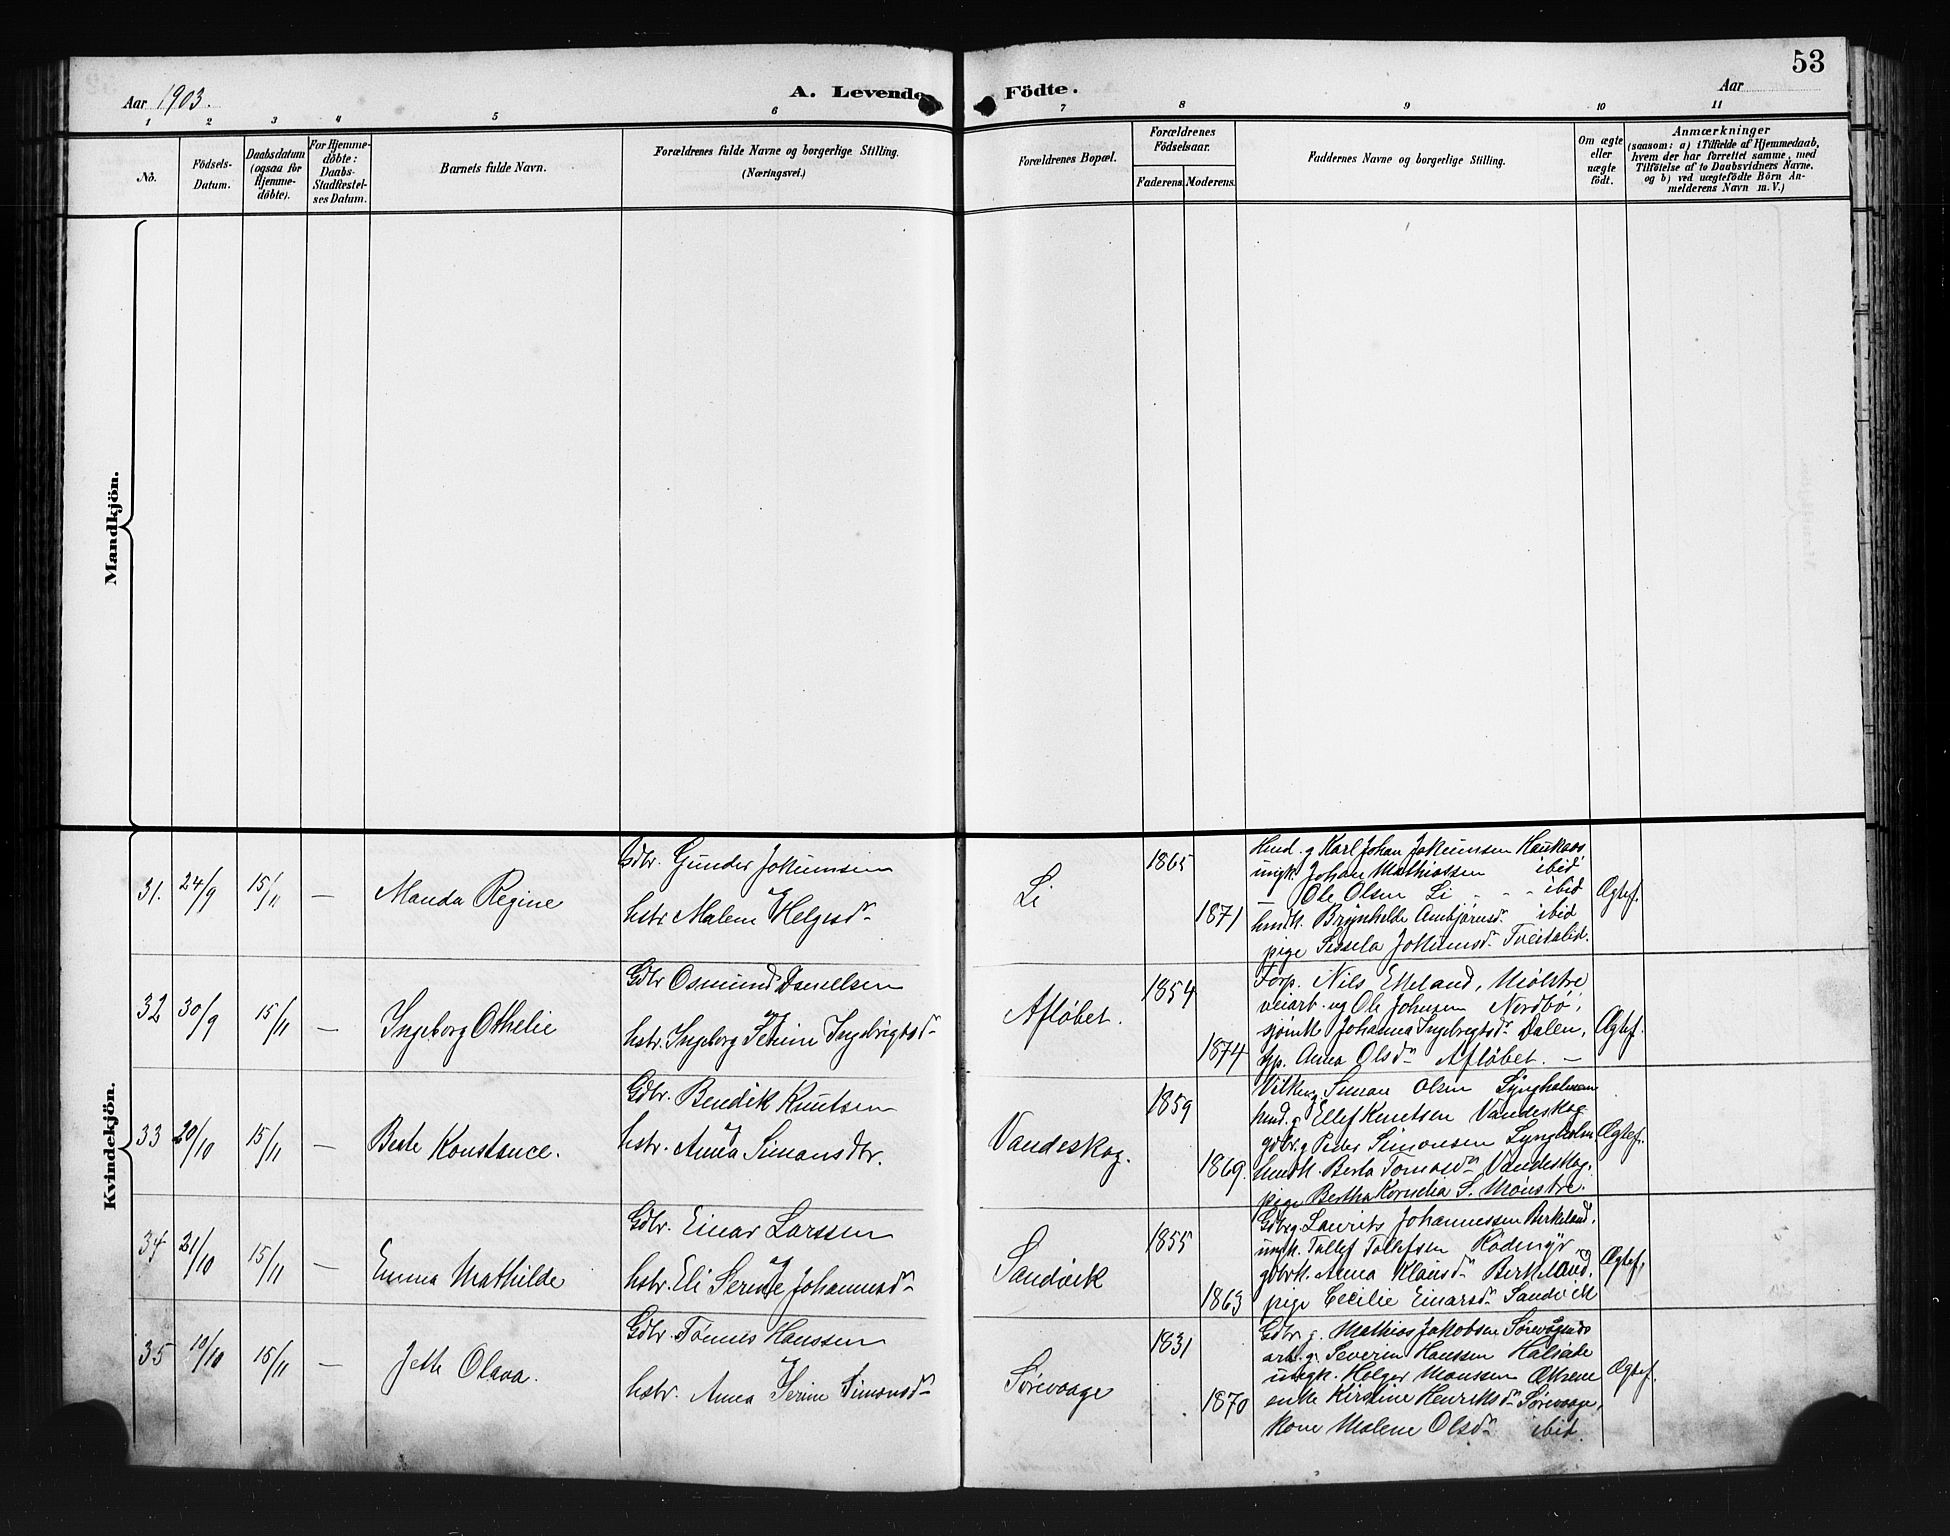 53
Aar 1903.
A. Levende Födte.
Aar
1 2 3 4 5 6 7 8 9 10 11
No.
Födsels-
Datum.
Daabsdatum
(ogsaa for
Hjemme-
döbte).
For Hjemme-
döbte:
Daabs-
Stadfæstel-
ses Datum.
Barnets fulde Navn.
Forældrenes fulde Navne og borgerlige Stilling.
(Næringsvei.)
Forældrenes Bopæl.
Forældrenes
Födselsaar.
Faderens. Moderens.
Faddernes Navne og borgerlige Stilling.
Om ægte
eller
uægte
födt.
Anmærkninger
(saasom: a) i Tilfælde af Hjemmedaab,
hvem der har forrettet samme, med
Tilföielse af to Daabsvidners Navne,
og b) ved uægtefödte Börn An-
melderens Navn m. V.)
Mandkjön.
Kvindekjön.
31. 24/9 15/11 — Manda Regine
Gdbr. Gunder Jokumsen
og
hstr. Malene Helgesdr
Li
1865
1871
Hmd. g Karl Johan Jokumsen Haukaas
ungk. Johan Mathiassen ibid
— Ole Olsen Li - - ibid
hmdk. Brynhilde Ambjørnsdr ibid
pige Sissela Jokumsdr Tveitalid.
Ægtef.
32 30/9 15/11 — Ingeborg Othelie
Gdbr Osmund Danielsen
og
hstr. Ingeborg Serine Ingebrigtsdr
Afløbet.
1854
1874
Forp. Nils Etteland, Mølstre
veiarb. og Ole Johnsen Nordbø,
sjømk Johanna Ingebrigtsdr Dalen,
hp. Anna Olsdr Afløbet. —
Ægtef.
33 20/10 15/11 — Berte Konstance.
Gdbr. Bendik Knutsen
og
hstr. Anna Simonsdtr.
Vandeskog.
1859
1869.
Simon Olsen Lyngholmen
hmd. g Ellef Knutsen Vandeskog
gdbr. g Peder Simonsen Lyngholm
hmdk. Berta Tomasdr Vandeskog,
pige Bertha Kornelia S. Mønstre.
Ægtef.
34 21/10 15/11 — Emma Mathilde
Gdbr. Einar Larssen
og
hstr. Eli Serine Johannesdr
Sandvik
1855
1863
Gdbr g. Laurits Johannessen Birkeland,
ungk. Tollef Tollefsen Rødmyr
gdbrk. Anna Klausdr Birkeland,
pige Cecilie Einarsdr Sandvik
Ægtef.
35 10/10 15/11 — Jette Olava.
Gdbr Tønnes Hanssen
og
hstr. Anna Serine Simonsdr
Sørevaage
1831
1870
Gdbr. g. Mathias Jakobsen
arb. g. Severin Hanssen
ungk. Holger Monssen
enke Kirstine Henriksdr Sørevaage,
kone Malene Olsdr ibid.
Ægtef.